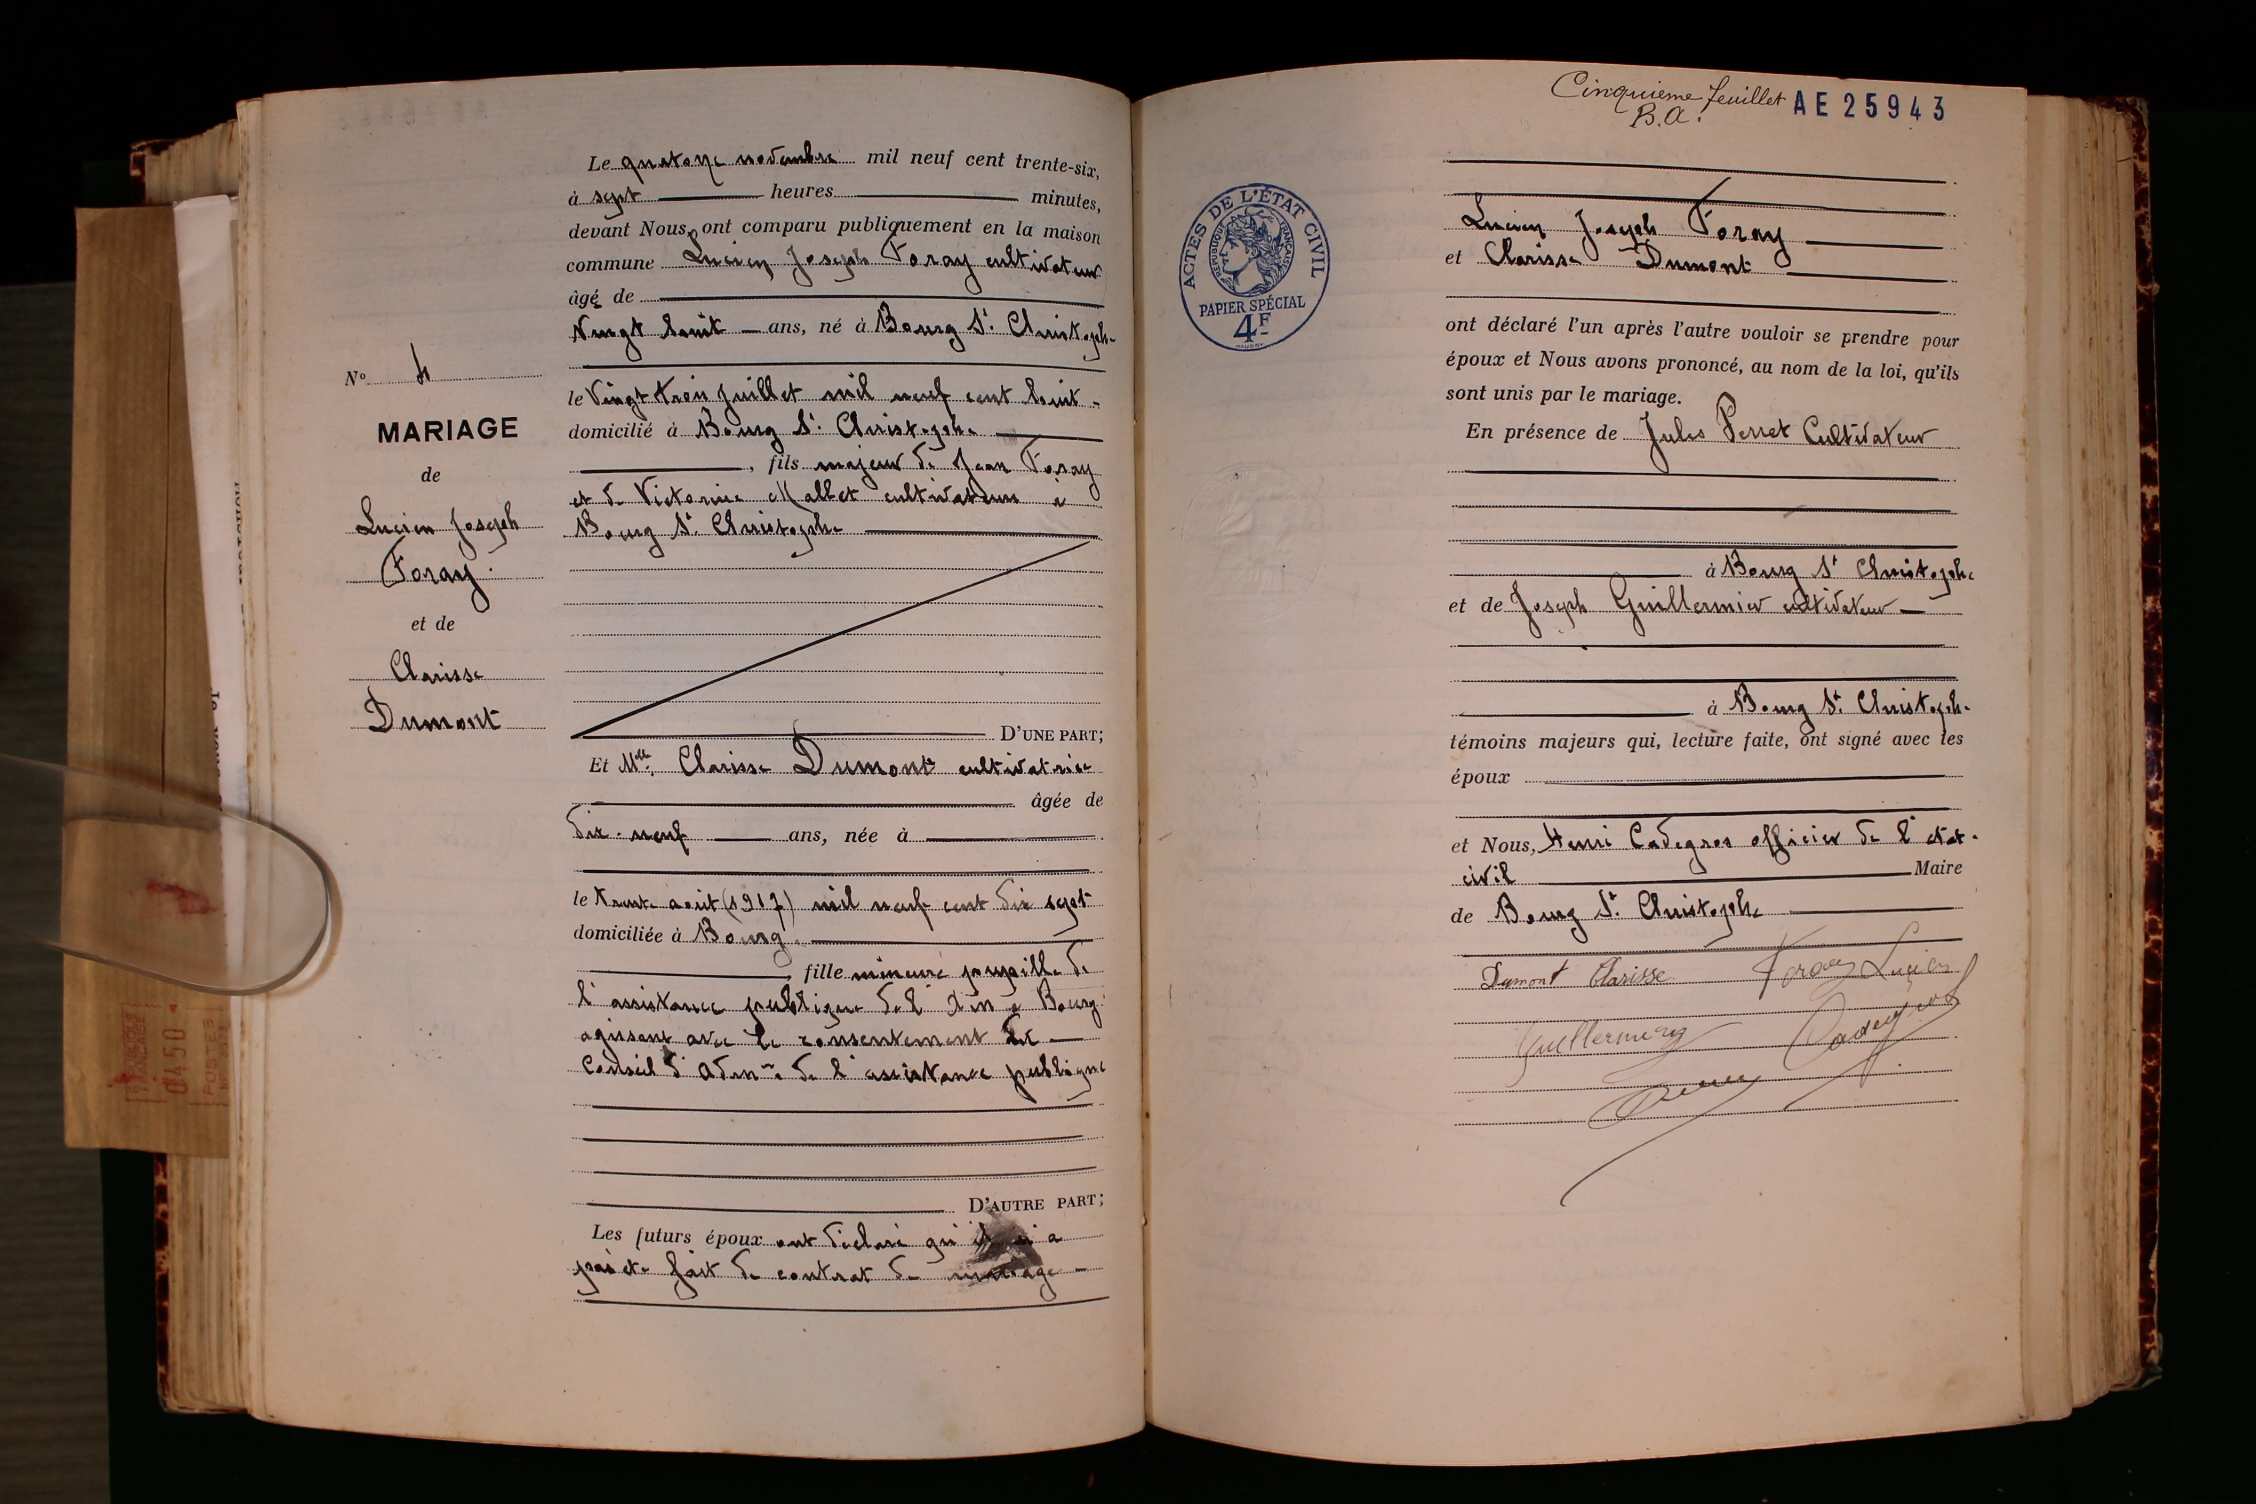 Le quatorze novembre mil neuf cent trente-six,
à sept heures minutes,
devant Nous, ont comparu publiquement en la maison
commune Lucien Joseph Foray cultivateur
âgé de
Vingt huit ans, né à Bourg St Christophe
le Vingt trois juillet mil neuf cent huit
domicilié à Bourg St Christophe
, fils majeur de Jean Foray
et de Victorine Mallet cultivateurs à
Bourg St Christophe
D'UNE PART;
Et Mlle Clarisse Dumont cultivatrice
âgée de
dix-neuf ans, née à
le trente août (1917) mil neuf cent dix sept
domiciliée à Bourg
fille mineure pupille de
l'assistance publique de l'Ain à Bourg
agissant avec le consentement du
Conseil d'Admon de l'assistance publique
D'AUTRE PART;
Les futurs époux ont déclaré qu'il n'a
pas ete fait de contrat de mariage
No 4
MARIAGE
de
Lucien Joseph
Foray
et de
Clarisse
Dumont
Cinquieme feuillet
B.A.
AE 25943
ACTES DE L'ÉTAT CIVIL
REPUBLIQUE FRANÇAISE
PAPIER SPÉCIAL
4F
Lucien Joseph Foray
et Clarisse Dumont
ont déclaré l'un après l'autre vouloir se prendre pour
époux et Nous avons prononcé, au nom de la loi, qu'ils
sont unis par le mariage.
En présence de Jules Perret Cultivateur
à Bourg St Christophe
et de Joseph Guillermier cultivateur
à Bourg St Christophe
témoins majeurs qui, lecture faite, ont signé avec les
époux
et Nous, Henri Cadegros officier de l'etat
civil Maire
de Bourg St Christophe
Dumont Clarisse Foray Lucien
Cadegros
0450
POSTES